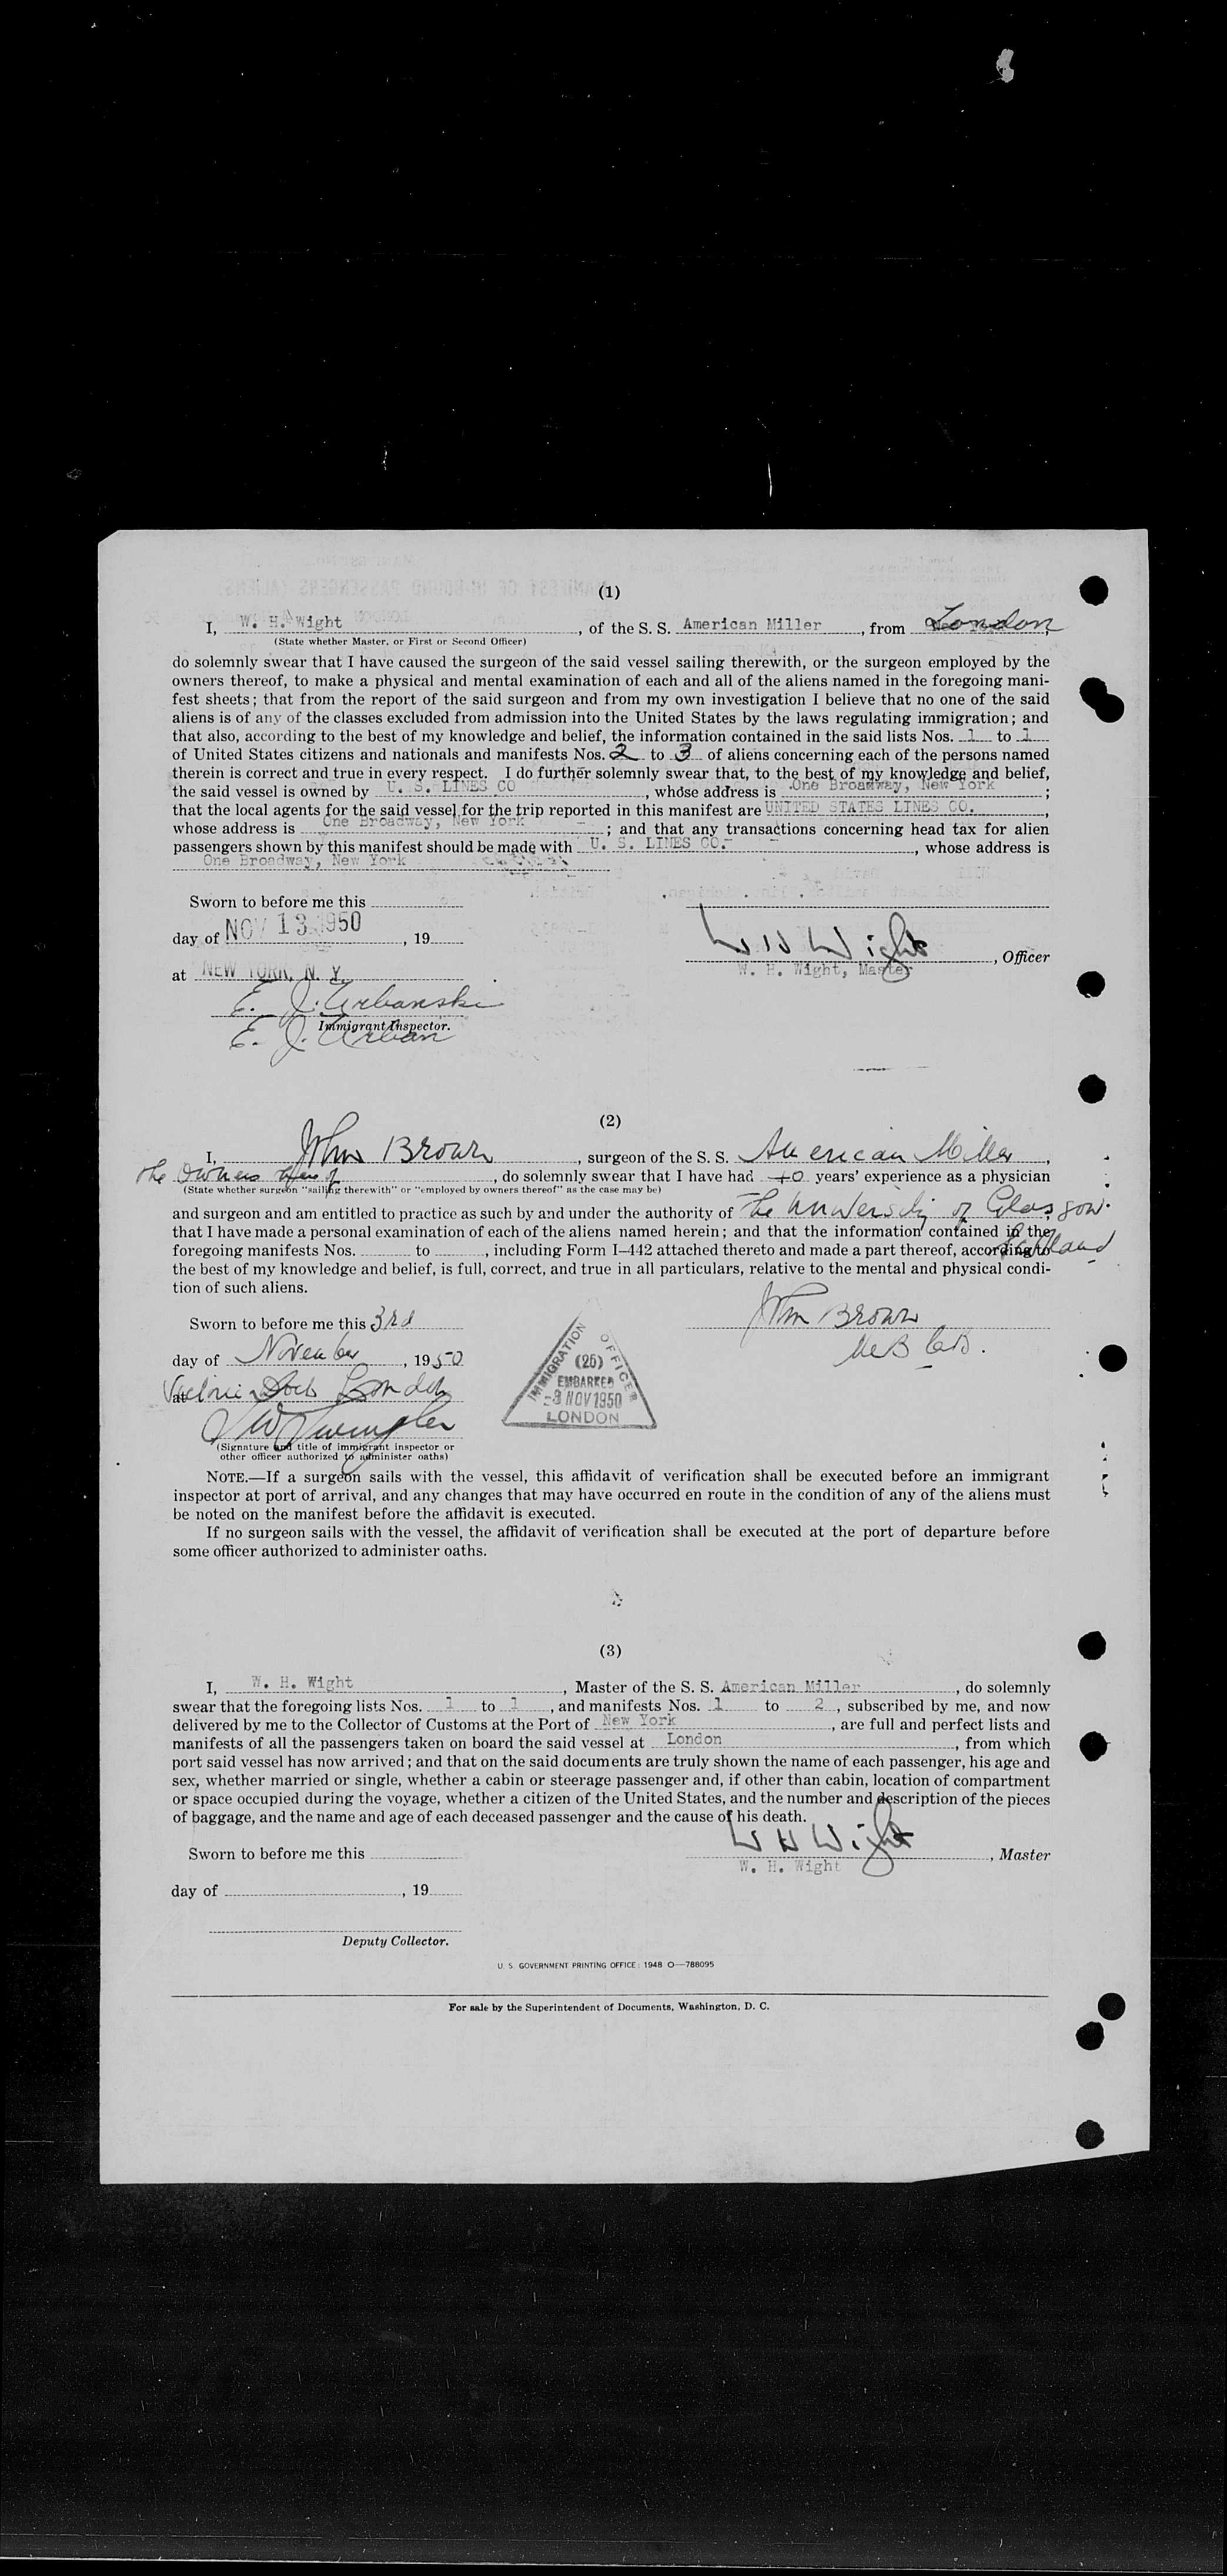 (1)
I, W. H. Wight, of the S. S. American Miller, from London,
(State whether Master, or First or Second Officer)
do solemnly swear that I have caused the surgeon of the said vessel sailing therewith, or the surgeon employed by the
owners thereof, to make a physical and mental examination of each and all of the aliens named in the foregoing mani-
fest sheets; that from the report of the said surgeon and from my own investigation I believe that no one of the said
aliens is of any of the classes excluded from admission into the United States by the laws regulating immigration; and
that also, according to the best of my knowledge and belief, the information contained in the said lists Nos. 1 to 1
of United States citizens and nationals and manifests Nos. 2 to 3 of aliens concerning each of the persons named
therein is correct and true in every respect. I do further solemnly swear that, to the best of my knowledge and belief,
the said vessel is owned by U. S. LINES CO, whose address is One Broadway, New York;
that the local agents for the said vessel for the trip reported in this manifest are UNITED STATES LINES CO.,
whose address is One Broadway, New York; and that any transactions concerning head tax for alien
passengers shown by this manifest should be made with U. S. LINES CO.-, whose address is
One Broadway, New York
Sworn to before me this
day of NOV 13 1950, 19
W H Wight, Officer
at NEW YORK, N. Y.
W. H. Wight, Master
E. J. Urbanski
Immigrant Inspector.
E. J. Urban
(2)
I, John Brown, surgeon of the S. S. American Miller,
the Owners, do solemnly swear that I have had 40 years' experience as a physician
(State whether surgeon "sailing therewith" or "employed by owners thereof" as the case may be)
and surgeon and am entitled to practice as such by and under the authority of The University of Glasgow.
that I have made a personal examination of each of the aliens named herein; and that the information contained in the
Scotland
foregoing manifests Nos. to , including Form I-442 attached thereto and made a part thereof, according to
the best of my knowledge and belief, is full, correct, and true in all particulars, relative to the mental and physical condi-
tion of such aliens.
Sworn to before me this 3rd
John Brown
day of November, 1950
at Victoria Dock London
IMMIGRATION OFFICER
(25)
EMBARKED
-3 NOV 1950
LONDON
(Signature and title of immigrant inspector or
other officer authorized to administer oaths)
NOTE.—If a surgeon sails with the vessel, this affidavit of verification shall be executed before an immigrant
inspector at port of arrival, and any changes that may have occurred en route in the condition of any of the aliens must
be noted on the manifest before the affidavit is executed.
If no surgeon sails with the vessel, the affidavit of verification shall be executed at the port of departure before
some officer authorized to administer oaths.
(3)
I, W. H. Wight, Master of the S. S. American Miller, do solemnly
swear that the foregoing lists Nos. 1 to 1, and manifests Nos. 1 to 2, subscribed by me, and now
delivered by me to the Collector of Customs at the Port of New York, are full and perfect lists and
manifests of all the passengers taken on board the said vessel at London, from which
port said vessel has now arrived; and that on the said documents are truly shown the name of each passenger, his age and
sex, whether married or single, whether a cabin or steerage passenger and, if other than cabin, location of compartment
or space occupied during the voyage, whether a citizen of the United States, and the number and description of the pieces
of baggage, and the name and age of each deceased passenger and the cause of his death.
Sworn to before me this
W H Wight, Master
W. H. Wight
day of , 19
Deputy Collector.
U. S. GOVERNMENT PRINTING OFFICE: 1948 O—788095
For sale by the Superintendent of Documents, Washington, D. C.